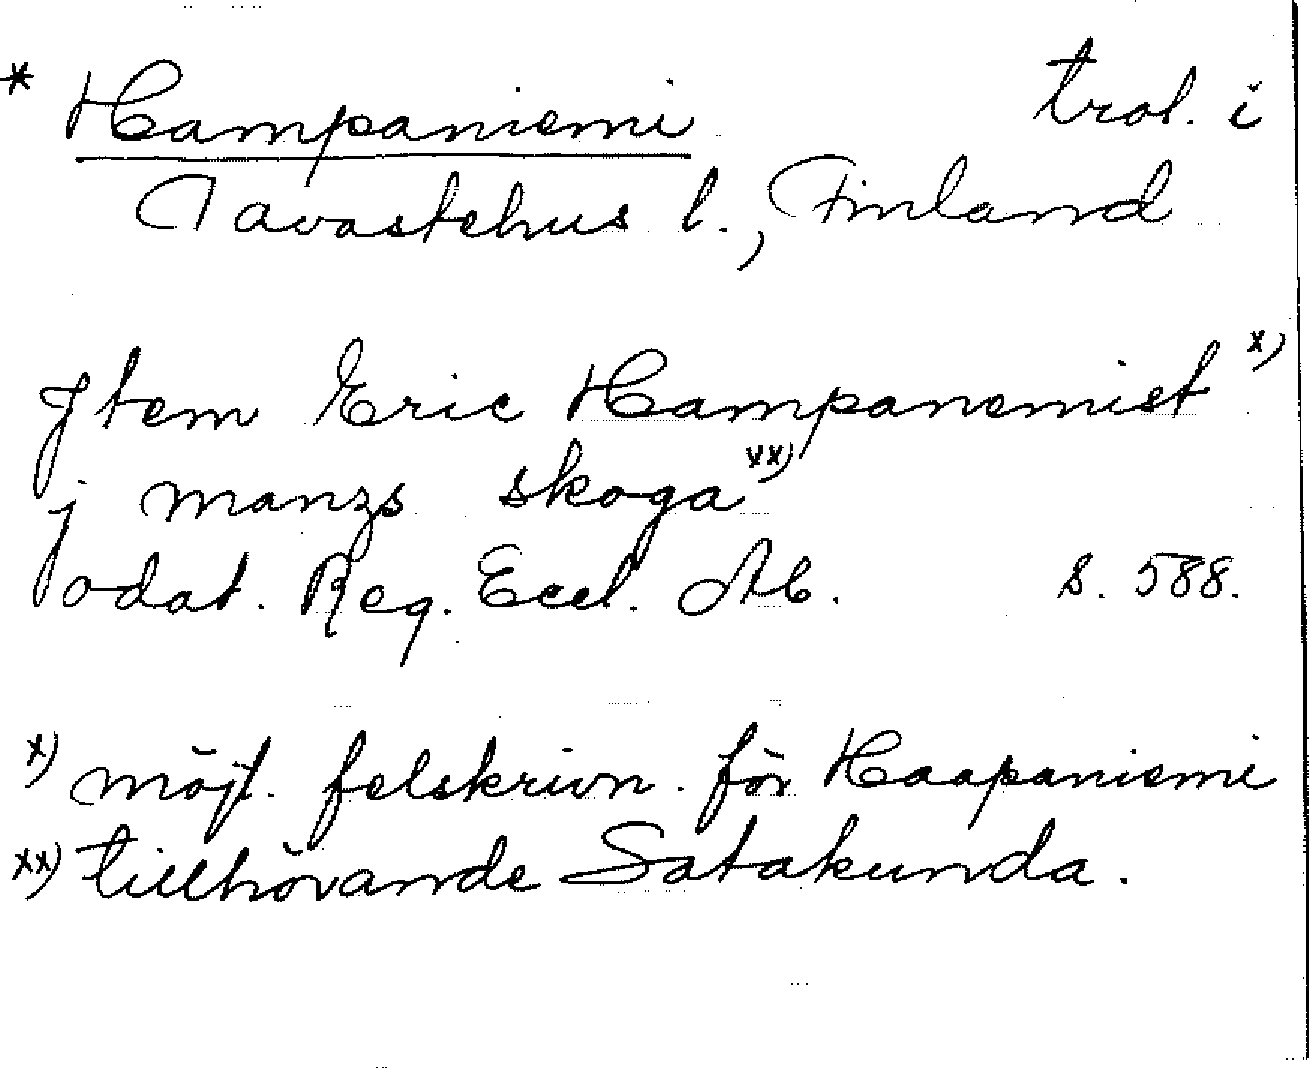 * Hampaniemi trol. i
Tavastehus l., Finland
Jtem Eric Hampanemist x)
j manzs skoga xx)
odat. Reg. Eccl. Ab. s. 588.
x) möjl. felskrivn. för Haapaniemi
xx) tillhörande Satakunda.